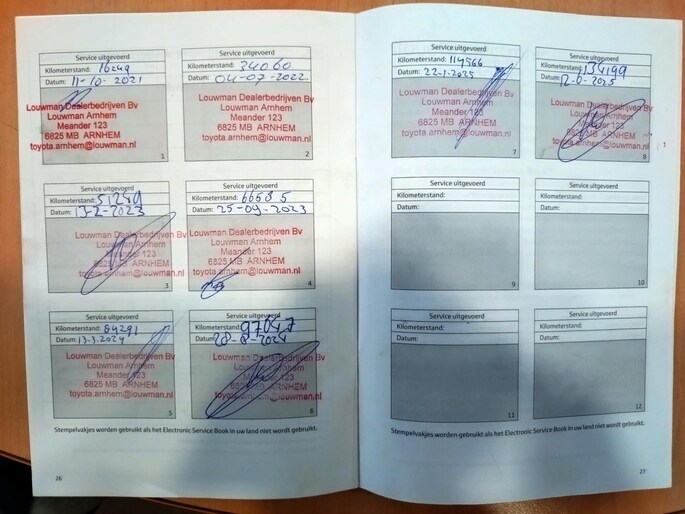 Service uitgevoerd
Kilometerstand: 16249
Datum: 11-10-2021
Louwman Dealerbedrijven Bv
Louwman Arnhem
Meander 123
6825 MB ARNHEM
toyota.arnhem@louwman.nl
1
Service uitgevoerd
Kilometerstand: 34060
Datum: 04-07-2022
Louwman Dealerbedrijven Bv
Louwman Arnhem
Meander 123
6825 MB ARNHEM
toyota.arnhem@louwman.nl
2
Service uitgevoerd
Kilometerstand: 51249
Datum: 13-2-2023
Louwman Dealerbedrijven Bv
Louwman Arnhem
Meander 123
6825 MB ARNHEM
toyota.arnhem@louwman.nl
3
Service uitgevoerd
Kilometerstand: 66585
Datum: 25-09-2023
Louwman Dealerbedrijven Bv
Louwman Arnhem
Meander 123
6825 MB ARNHEM
toyota.arnhem@louwman.nl
4
Service uitgevoerd
Kilometerstand: 84291
Datum: 13-3-2024
Louwman Dealerbedrijven Bv
Louwman Arnhem
Meander 123
6825 MB ARNHEM
toyota.arnhem@louwman.nl
5
Service uitgevoerd
Kilometerstand: 97047
Datum: 28-8-2024
Louwman Dealerbedrijven Bv
Louwman Arnhem
Meander 123
6825 MB ARNHEM
toyota.arnhem@louwman.nl
6
Stempelvakjes worden gebruikt als het Electronic Service Book in uw land niet wordt gebruikt.
26
Service uitgevoerd
Kilometerstand: 114566
Datum: 22-1-2025
Louwman Dealerbedrijven Bv
Louwman Arnhem
Meander 123
6825 MB ARNHEM
toyota.arnhem@louwman.nl
7
Service uitgevoerd
Kilometerstand: 134199
Datum:
Louwman Dealerbedrijven Bv
Louwman Arnhem
Meander 123
6825 MB ARNHEM
toyota.arnhem@louwman.nl
8
Service uitgevoerd
Kilometerstand:
Datum:
9
Service uitgevoerd
Kilometerstand:
Datum:
10
Service uitgevoerd
Kilometerstand:
Datum:
11
Service uitgevoerd
Kilometerstand:
Datum:
12
Stempelvakjes worden gebruikt als het Electronic Service Book in uw land niet wordt gebruikt.
27